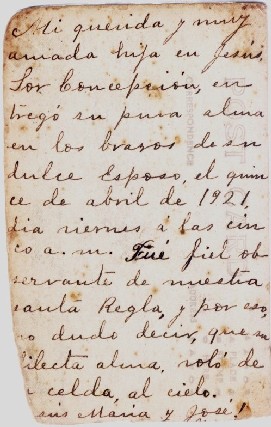 Mi querida y muy
amada hija en Jesús
Sor Concepción, en
tregó su pura alma
en los brazos de su
dulce Esposo, el quin
ce de abril de 1921,
dia viernes á las cin
co a. m. Fué fiel ob
servante de nuestra
santa Regla, y por eso,
no dudo decir, que su
dilecta alma, voló de
celda, al cielo.
Jesús María y José!
POST CARD
CORRESPONDENCE